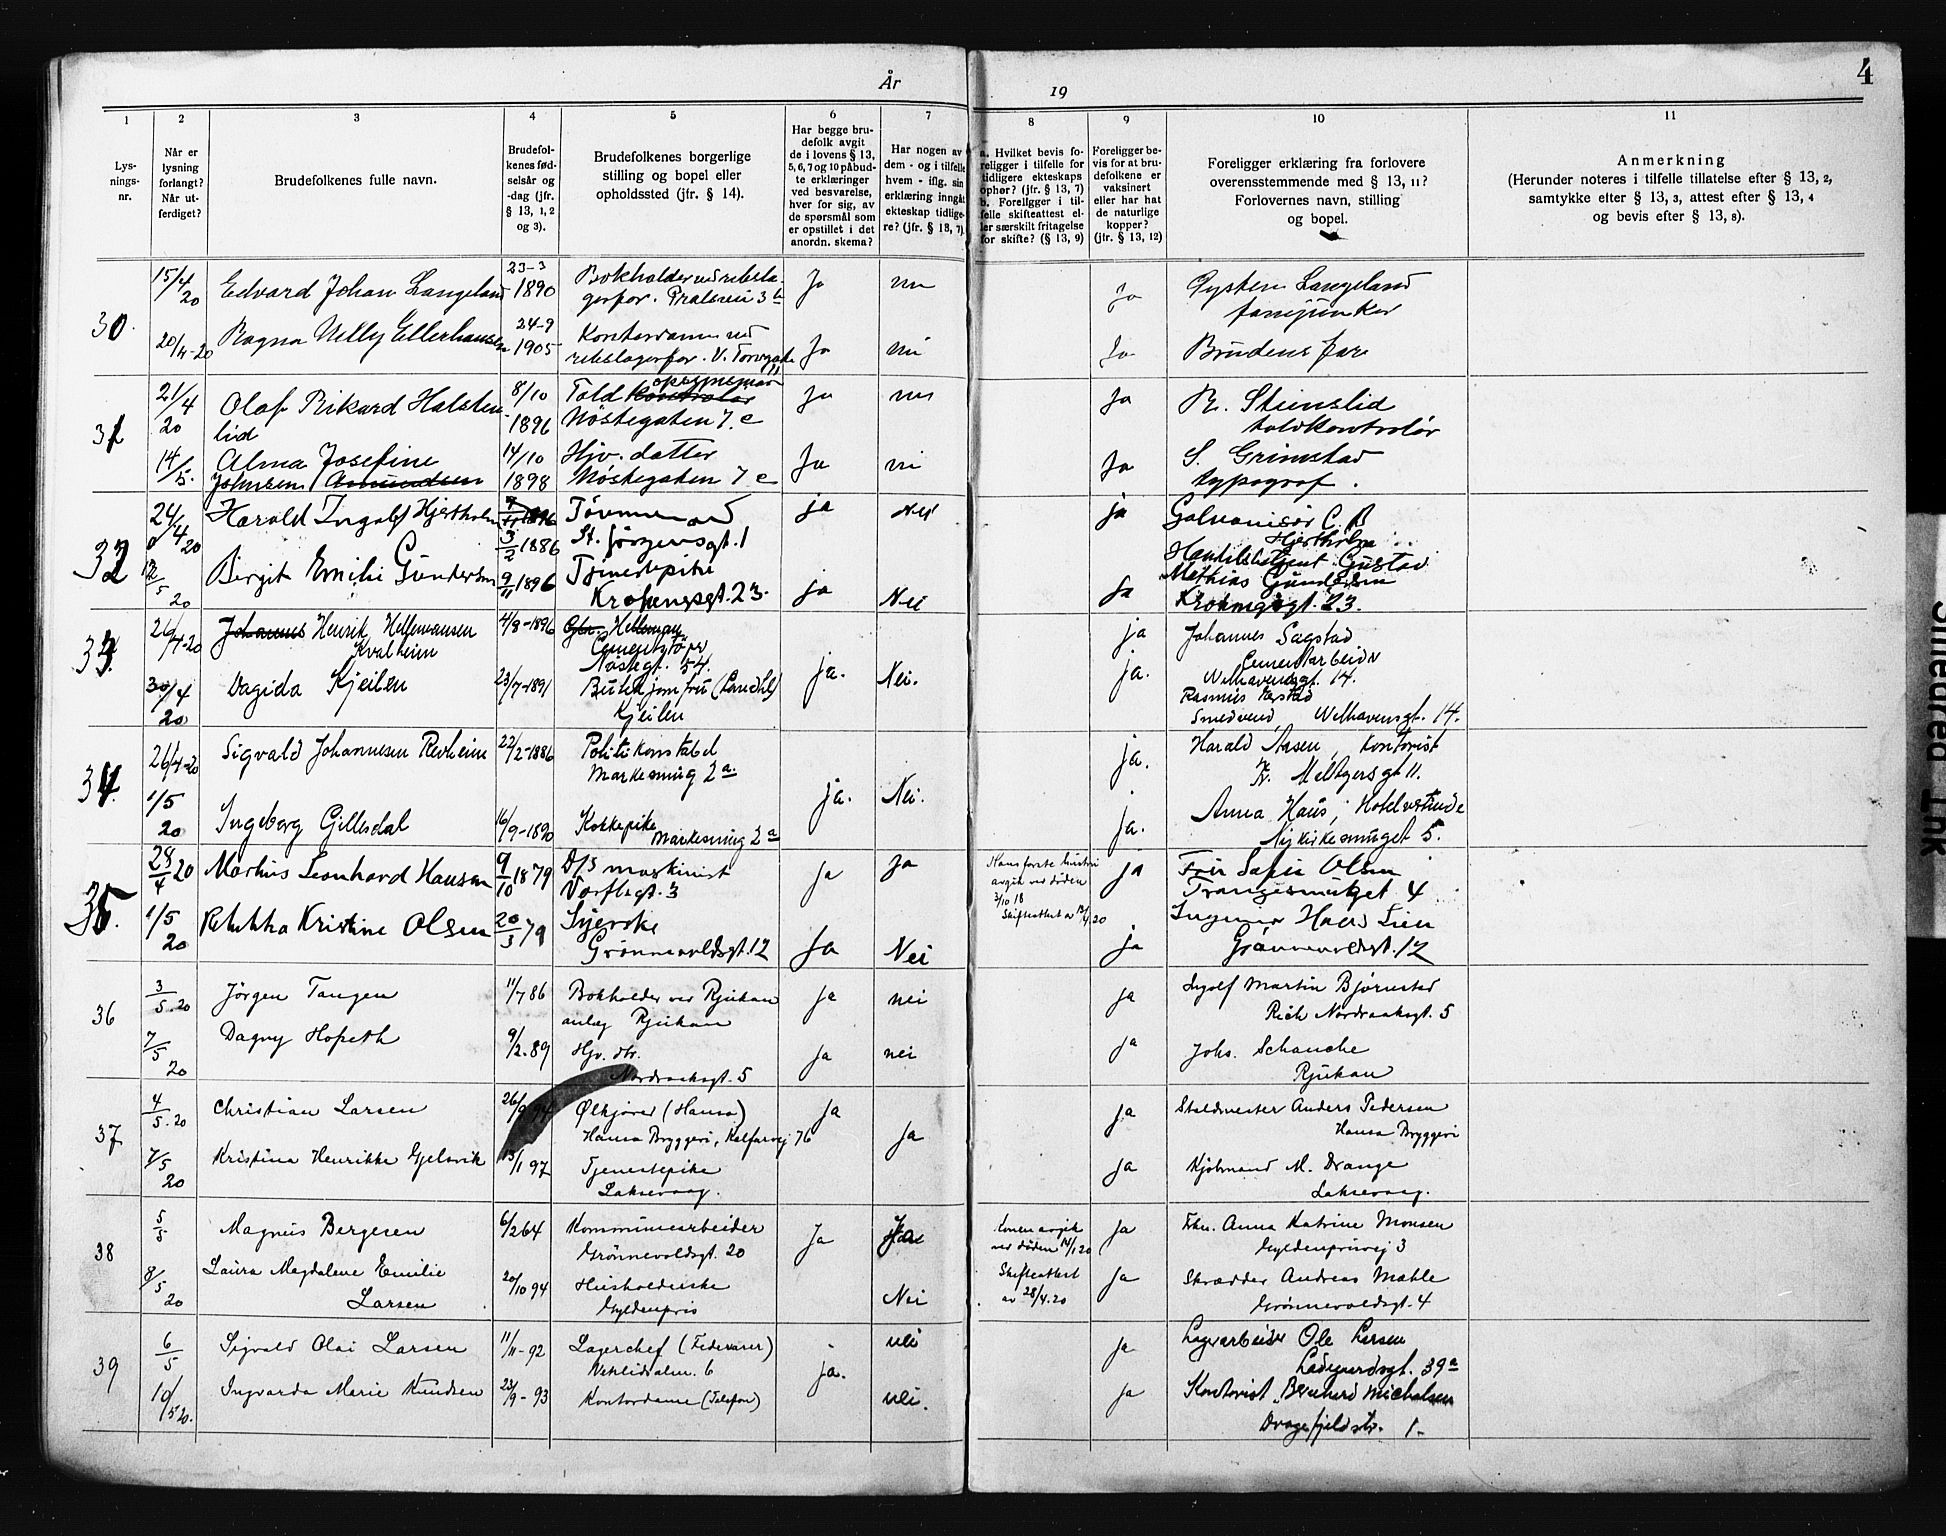 År
19
4
1
2
3
4
5
6
7
8
9
10
11
Lys-
nings-
nr.
Når er
lysning
forlangt?
Når ut-
ferdiget?
Brudefolkenes fulle navn.
Brudefol-
kenes fød-
selsår og
-dag (jfr.
§ 13, 1, 2
og 3).
Brudefolkenes borgerlige
stilling og bopel eller
opholdssted (jfr. § 14).
Har begge bru-
defolk avgit
de i lovens § 13,
5, 6, 7 og 10 påbud-
te erklæringer
ved besvarelse,
hver for sig, av
de spørsmål som
er opstillet i det
anordn. skema?
Har nogen av
dem - og i tilfelle
hvem - iflg. sin
erklæring inngåt
ekteskap tidlige-
re? (jfr. § 13, 7)
a. Hvilket bevis fo-
religger i tilfelle for
tidligere ekteskaps
ophør? (jfr. § 13, 7)
b. Foreligger i til-
felle skifteattest el-
ler særskilt fritagelse
for skifte? (§ 13, 9)
Foreligger be-
vis for at bru-
defolkene er
vaksinert
eller har hat
de naturlige
kopper?
(jfr. § 13, 12)
Foreligger erklæring fra forlovere
overensstemmende med § 13, 11?
Forlovernes navn, stilling
og bopel.
Anmerkning
(Herunder noteres i tilfelle tillatelse efter § 13, 2,
samtykke efter § 13, 3, attest efter § 13, 4
og bevis efter § 13, 8).
30.
15/4 20
Edvard Johan Langeland
23-3 1890
Bokholder ved rebsla-
gerfor.
Ja
nei
Ja
Øysten Langeland
fanejunker
20/4-20
Ragna Nelly Ellerhausen
24-9 1905
Kontordame ved
rebslagerfor. V. Torvgate
Ja
nei
Ja
Brudens far
31
21/4 20
Olaf Rikard Halsten-
lid
8/10 1896
Told kontrolør
opsynsmand
Nøstegaten 7 c
Ja
nei
Ja
R. Steinslid
toldkontrolør
14/5.
Alma Josefine
Johnsen Amundsen
14/10 1898
Hjv. datter
Nøstegaten 7 c
Ja
nei
Ja
S. Grimstad
typograf.
32
24/4 20
Harald Ingolf Hjertholm
3/2 1886
Tøvmand
St. Jörgensgt. 1
ja
Nei
ja
Galvanisör C. B
Hjertholm
12/5 20
Birgit Emilie Gundersen
9/11 1896
Tjenestepike
Krohengsgt. 23.
ja
Nei
Ja
Handelsbetjent Gustav
Mathias Gundersen
Krohengsgt. 23.
33.
26/4-20
Johannes Henrik Hellemansen
Kvalheim
4/8-1896
Cementstöper
Nöstegt. 54.
ja.
Nei.
ja
Johannes Sagstad
Cementarbeider
Welhavensgt. 14.
30/4 20
Dagida Kjeilen
23/7-1891
Butikjomfru (Landhl)
Kjeilen
ja.
Rasmus
Smedsvend Welhavensgt. 14.
34.
26/4-20
Sigvald Johannesen Revheim
22/2-1886
Politikonstabel
Markesmug 2 a.
ja.
Nei.
ja.
Harald Aasen, Kontorist
Meltzersgt 11.
1/5 20
Ingeborg Gillesdal
16/9-1890
Kokkepike
Markesmug 2 a
ja.
Anna Haus, Hotelvertinde
Nykirkesmuget 5.
35.
28/4 20
Martius Leonhard Hansen
9/10 1879
D/S maskinist
ja
Ja
Hans første hustru
avgik ved døden
3/10 18
Skifteattest av 13/4 20
ja
Fru Sofie Olsen
Trangesmuget 4
1/5 20
Rebekka Kristine Olsen
20/3 79
Syerske
Grønnevoldsgt. 12
Ja
Nei
ja
Ingeniør Hans Lien
Grönnevoldsgt. 12
36
3/5.20
Jörgen Tangen
11/7 86
Bokholder ved Rjukan
anlæg Rjukan
ja
nei
ja
Ingolf Martin Bjørnstad
Rich Nordraaksgt. 5
7/5 20
Dagny Hopeth
9/2.89
Hjv. dtr.
Nordraaksgt. 5
ja
nei
ja
Johs. Schanche
Rjukan
37
4/5.20
Christian Larsen
26/9 94
Ølkjører (Hansa)
Hansa Bryggeri, Kalfarvej 76
ja
Ja
ja
Staldmester Anders Pedersen
Hansa Bryggeri
7/5 20
Kristina Henrikke Gjelsvik
13/1 97
Tjenestepike
Laksevaag.
ja
Kjøbmand M. Drange
Laksevaag.
38
5/5
Magnus Bergesen
6/2 64
Kommunearbeider
Grönnevoldsgt. 20
Ja
Ja
Konen avgik
ved døden 14/1 20
Skifteattest
av 28/4.20
ja
Frkn. Anna Katrine Monsen
Gyldenprisvej 3
8/5 20
Laura Magdalene Emilie
Larsen
20/10 94
Husholderske
Gyldenpris
Nei
ja
Skrædder Andreas Mæhle
Grönnevoldsgt. 4
39
6/5
Sigvald Olai Larsen
11/11-92
Lagerchef (Fedevarer)
ja.
nei
ja
Lagerarbeider Ole Larsen
Ladegaardsgt. 39 a
10/5 20.
Ingvarda Marie Knudsen
23/9-93
Kontordame (Telefon)
nei.
ja
Kontorist Bernhard Michelsen
Dragefjeldstr. 1.
Smeared Ink